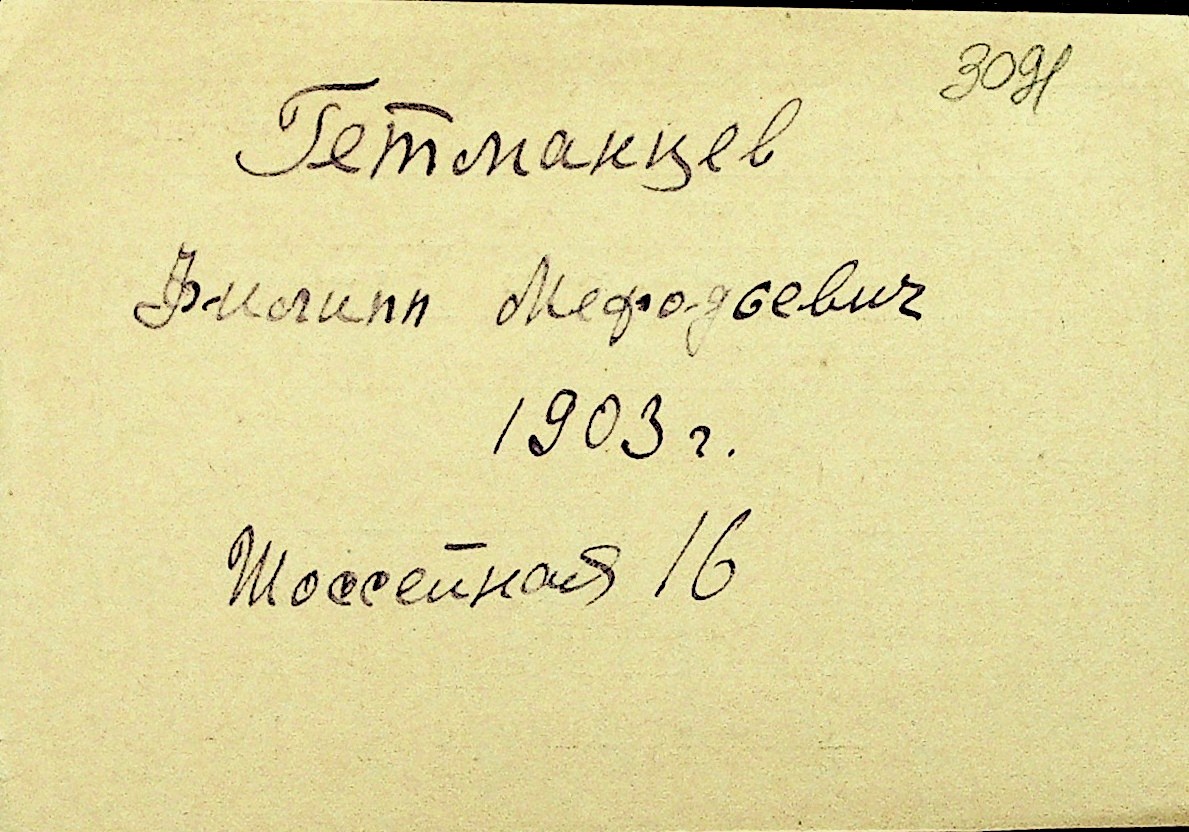 3091
Гетманцев
Филипп Мефодьевич
1903 г.
Шоссейная 16